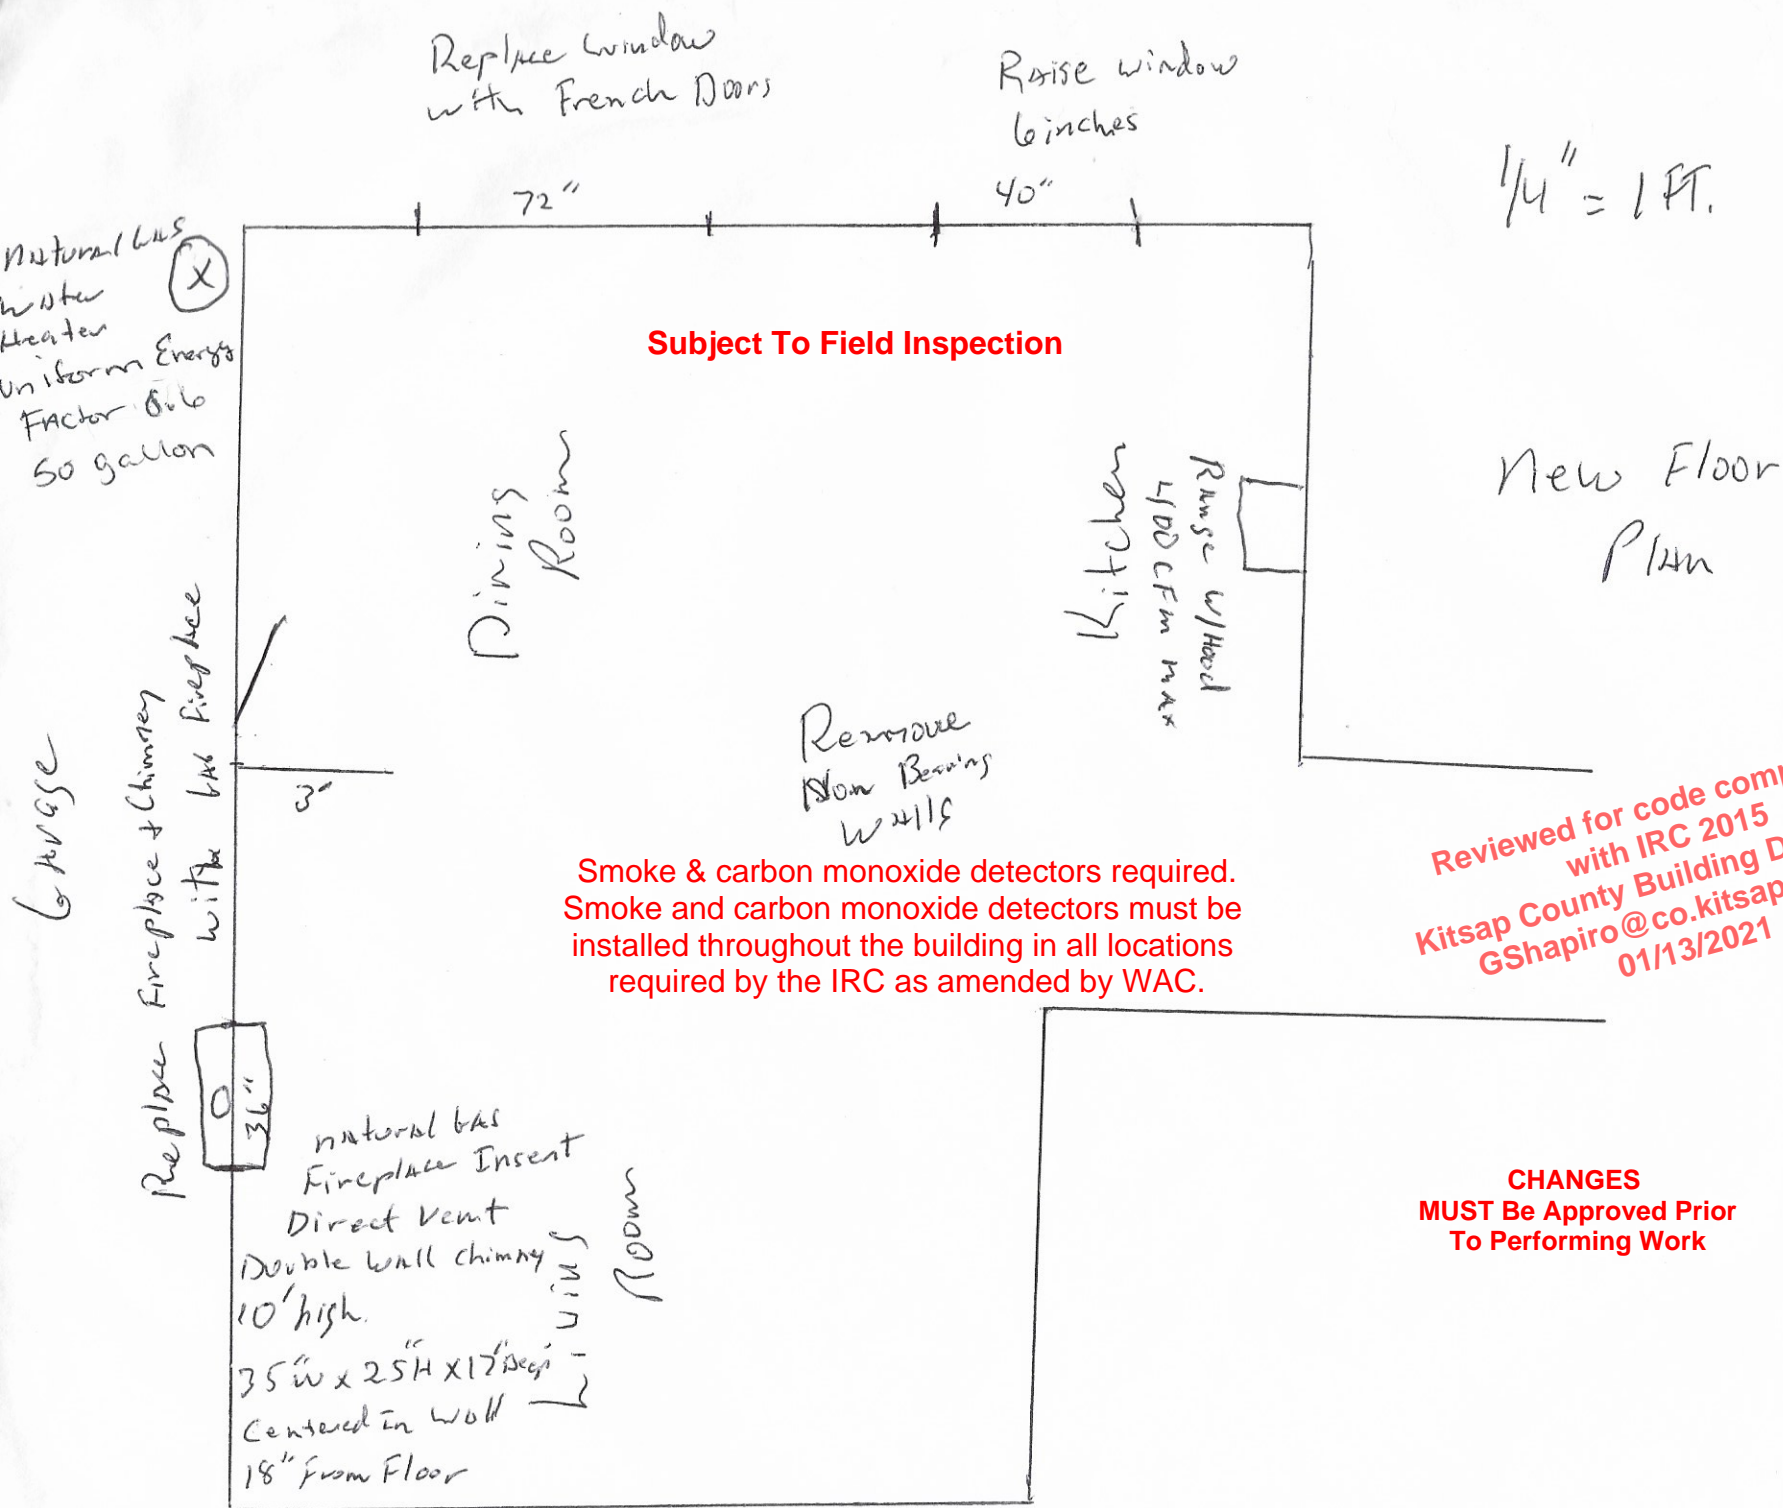 Replace window
with French Doors
Raise window
6 inches
72"
40"
1/4" = 1 FT.
Natural Gas
Water
Heater
Uniform Energy
Factor 0.6
50 gallon
X
Subject To Field Inspection
Dining
Room
Kitchen
Range w/Hood
400 CFM MAX
New Floor
Plan
Garage
Replace Fireplace & Chimney
with Gas Fireplace
3'
Remove
Non Bearing
Walls
Smoke & carbon monoxide detectors required.
Smoke and carbon monoxide detectors must be
installed throughout the building in all locations
required by the IRC as amended by WAC.
Reviewed for code comp
with IRC 2015
Kitsap County Building D
GShapiro@co.kitsap
01/13/2021
36"
Natural Gas
Fireplace Insert
Direct Vent
Double Wall Chimney
10' high.
35"W x 25"H x 17"Deep
Centered In Wall
18" From Floor
Living
Room
CHANGES
MUST Be Approved Prior
To Performing Work